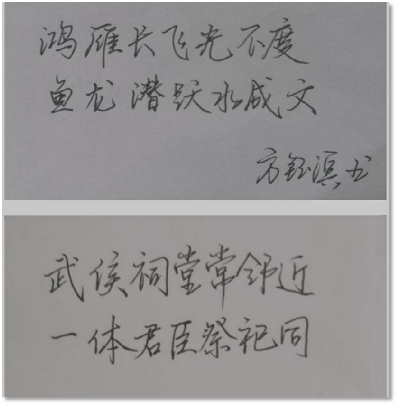 鸿雁长飞光不度
鱼龙潜跃水成文
方钰淏书
武侯祠堂常邻近
一体君臣祭祀同